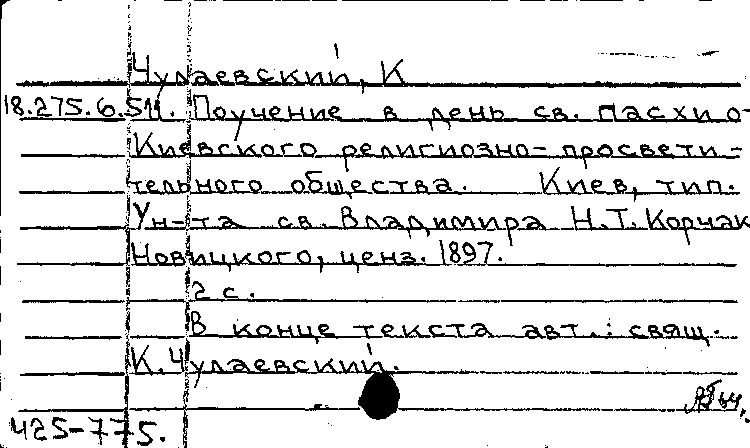 Чулаевский, К
18.275.6.511. Поучение в день св. пасхи о-
Киевского религиозно-просвети-
тельного общества. Киев, тип.
Ун-та св. Владимира Н.Т. Корчак
Новицкого, ценз. 1897.
2 с.
В конце текста авт.: свящ.
К. Чулаевский.
425-775.